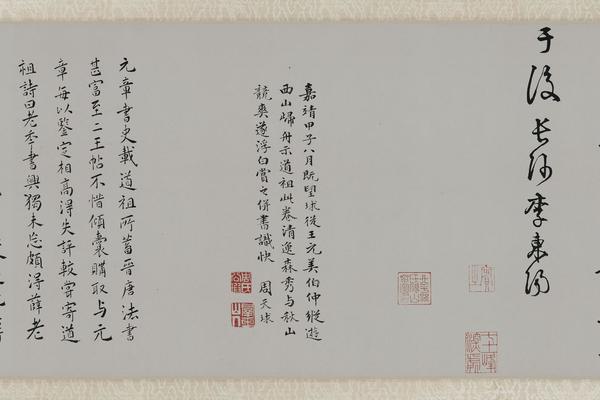 于後長沙李東陽
嘉靖甲子八月既望球從王元美伯仲縱遊
西山歸舟示道祖此卷清逸森秀与秋山
競爽遂浮白賞之併書識快 周天球
元章書史載道祖所蓄晉唐法書
甚富至二王帖不惜傾囊購取与元
章每以鑒定相高得失評較嘗寄道
祖詩曰老来書興獨未忘頗得薛老